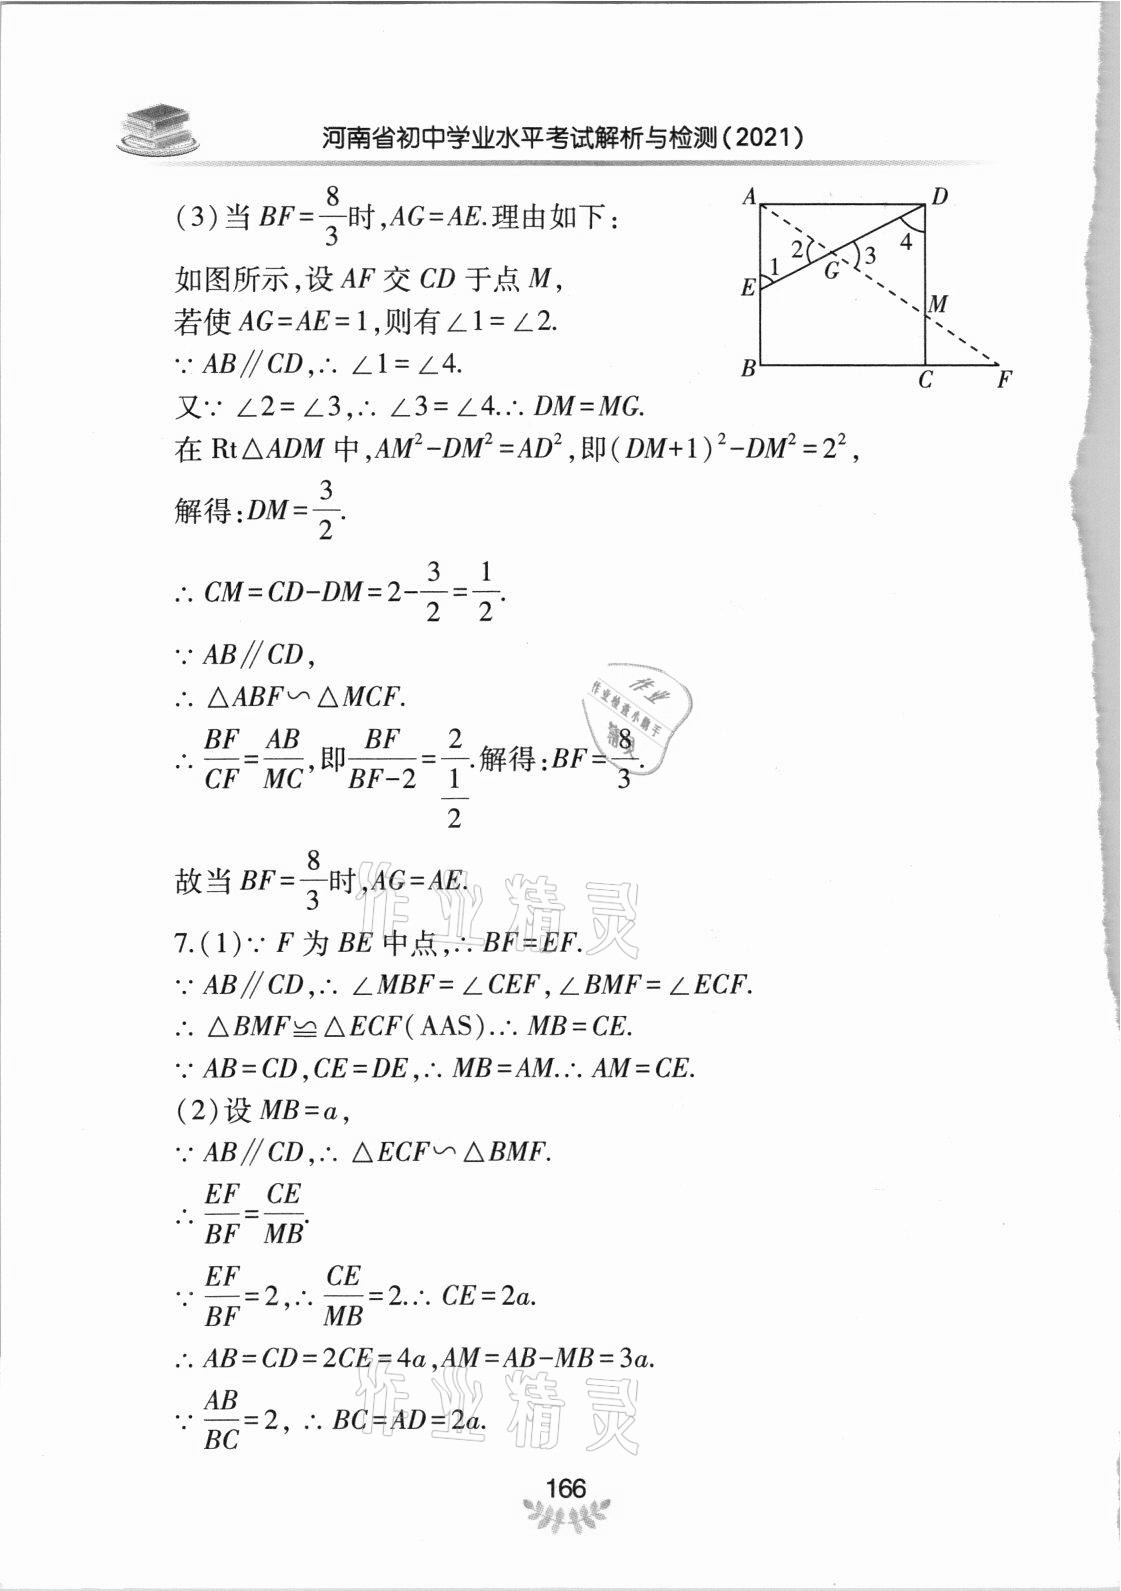 河南省初中学业水平考试解析与检测(2021)
(3)当 BF=8/3时,AG=AE.理由如下:
如图所示,设 AF 交 CD 于点 M,
若使 AG=AE=1,则有∠1=∠2.
∵ AB∥CD,∴ ∠1=∠4.
又∵ ∠2=∠3,∴ ∠3=∠4.∴ DM=MG.
在 Rt△ADM 中,AM²-DM²=AD²,即(DM+1)²-DM²=2²,
解得:DM=3/2.
∴ CM=CD-DM=2-3/2=1/2.
∵ AB∥CD,
∴ △ABF∽△MCF.
∴ BF/CF=AB/MC,即BF/(BF-2)=2/(1/2).解得:BF=8/3.
故当 BF=8/3时,AG=AE.
7.(1)∵ F 为 BE 中点,∴ BF=EF.
∵ AB∥CD,∴ ∠MBF=∠CEF,∠BMF=∠ECF.
∴ △BMF≌△ECF(AAS).∴ MB=CE.
∵ AB=CD,CE=DE,∴ MB=AM.∴ AM=CE.
(2)设 MB=a,
∵ AB∥CD,∴ △ECF∽△BMF.
∴ EF/BF=CE/MB.
∵ EF/BF=2,∴ CE/MB=2.∴ CE=2a.
∴ AB=CD=2CE=4a,AM=AB-MB=3a.
∵ AB/BC=2, ∴ BC=AD=2a.
166
A
D
2
4
1
3
G
E
M
B
C
F
作业
作业检查小助手
精灵
作业精灵
作业精灵